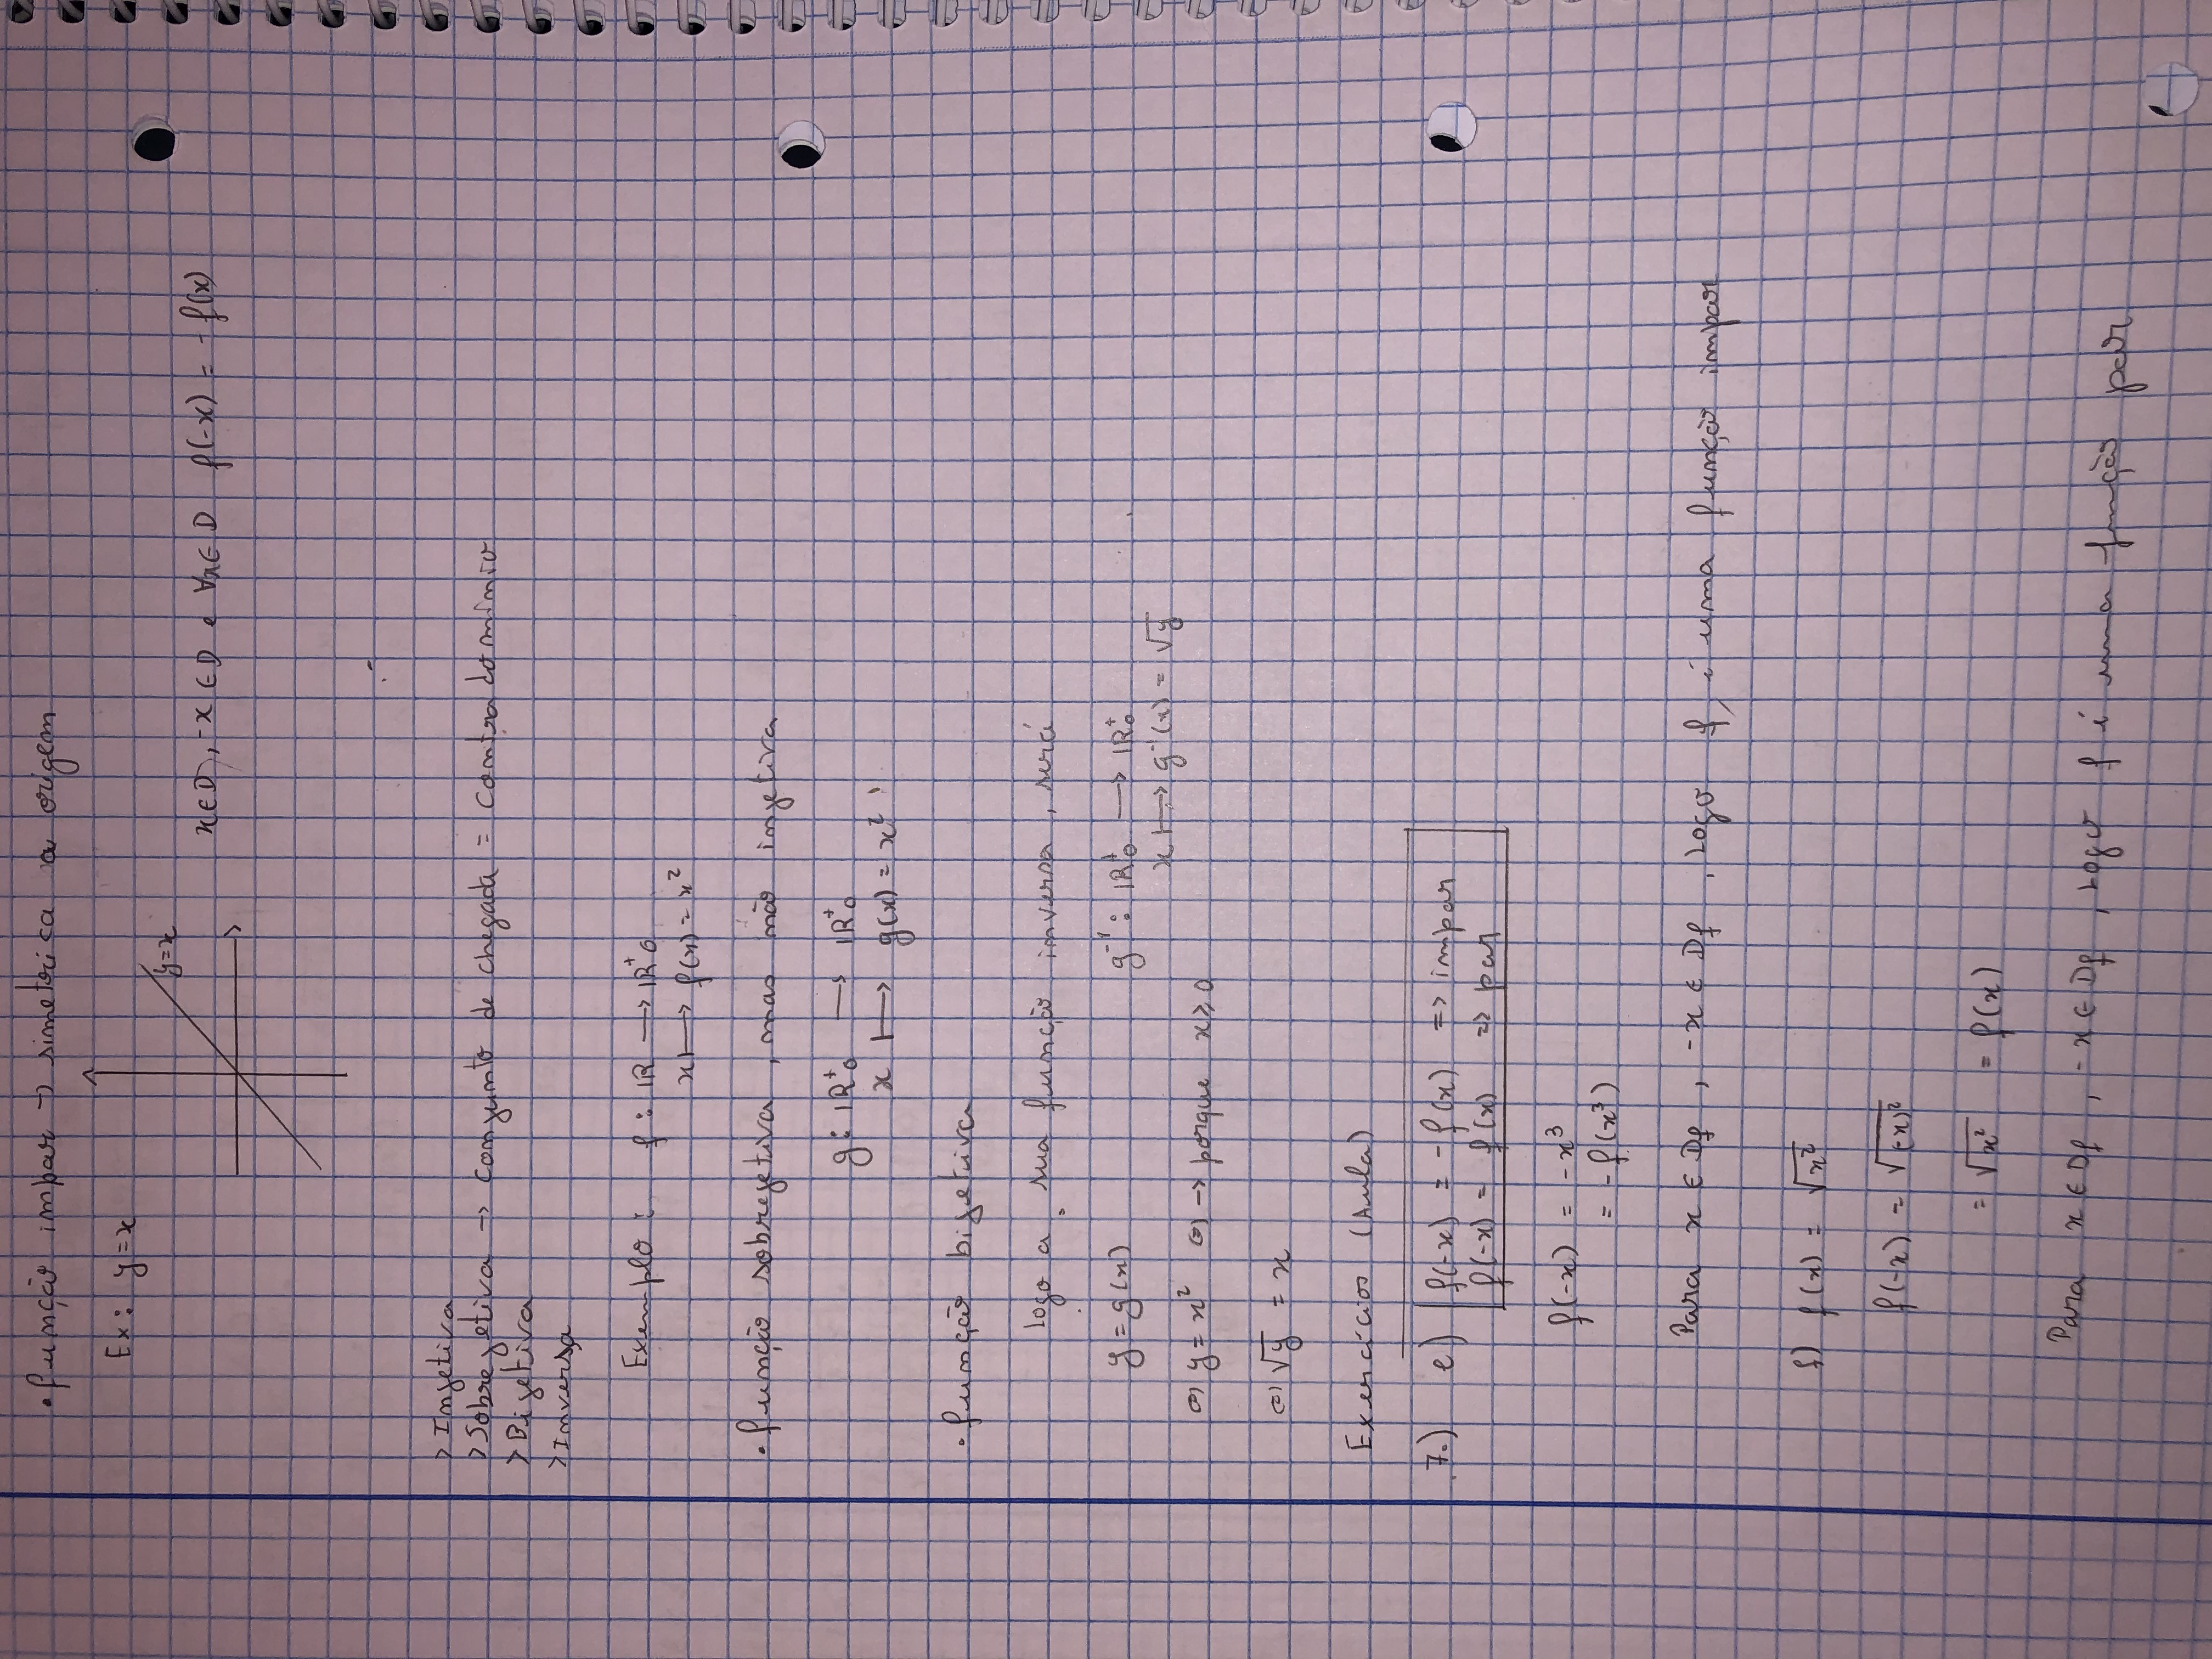 • função impar → simetrica a origem
Ex: y=x
y=x
x∈D, -x ∈D e ∀x∈D f(-x) = -f(x)
> Injetiva
> Sobrejetiva → conjunto de chegada = contradomínio
> Bijetiva
> Inversa
Exemplo: f: IR → IR⁺₀
x ↦ f(x) = x²
• função sobrejetiva, mas não injetiva
g: IR⁺₀ → IR⁺₀
x ↦ g(x) = x²
• função bijetiva
Logo a sua função inversa, será
y = g(x) g⁻¹: IR⁺₀ → IR⁺₀
x ↦ g⁻¹(x) = √y
⇔ y = x² ⇔ → porque x ≥ 0
⇔ √y = x
Exercícios (Aula)
7.) e) f(-x) = -f(x) => impar
f(-x) = f(x) => par
f(-x) = -x³
= -f(x³)
Para x ∈ Df, -x ∈ Df, Logo f é uma função impar
f) f(x) = √x²
f(-x) = √(-x)²
= √x² = f(x)
Para x ∈ Df, -x ∈ Df, Logo f é uma função par